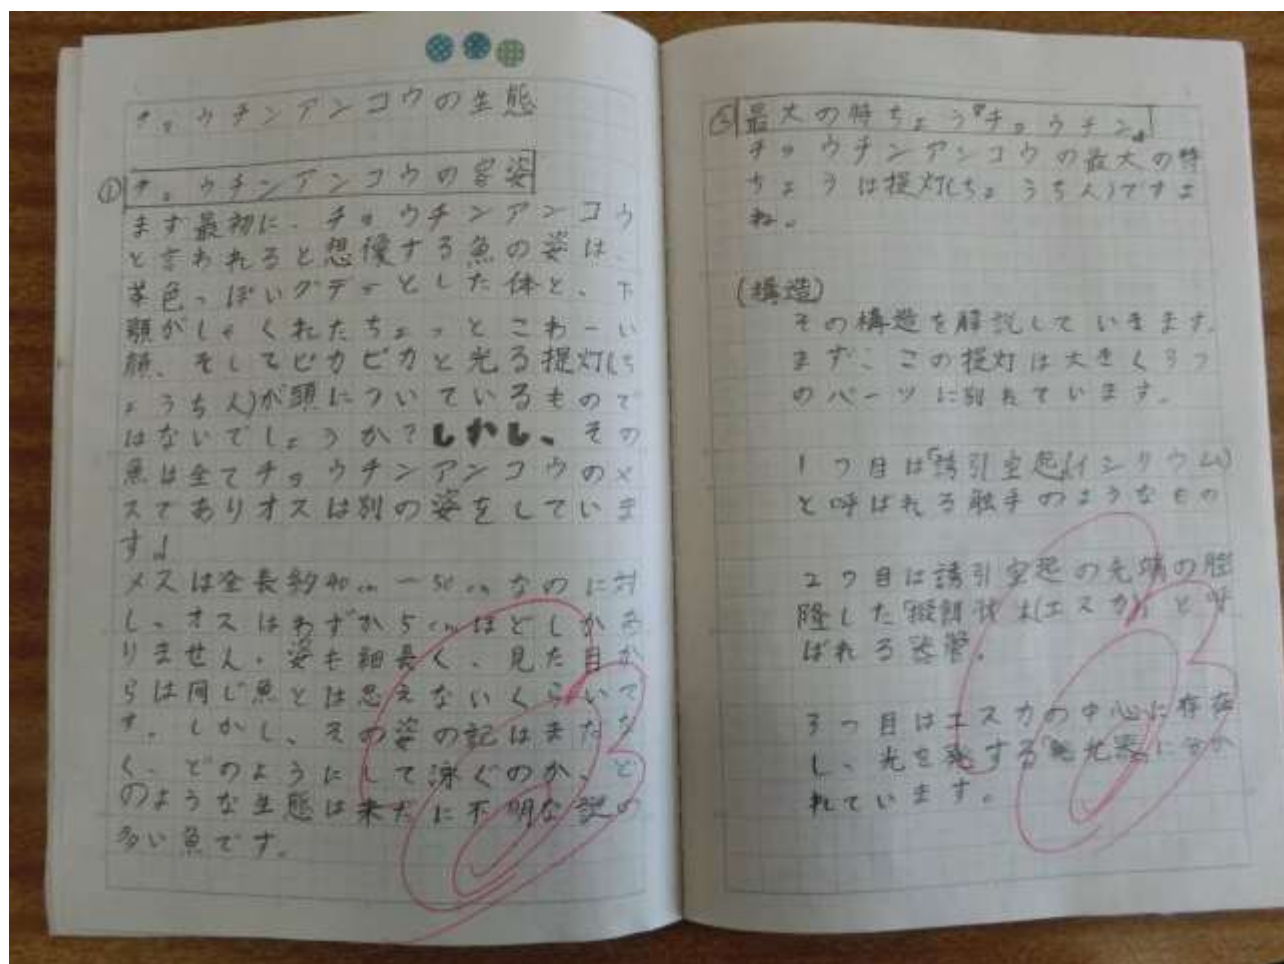 チョウチンアンコウの生態
①チョウチンアンコウの容姿
まず最初に、チョウチンアンコウ
と言われると想像する魚の姿は、
茶色っぽいグデーとした体と、下
顎がしゃくれたちょっとこわーい
顔、そしてピカピカと光る提灯(ち
ょうちん)が頭についているもので
はないでしょうか?しかし、その
魚は全てチョウチンアンコウのメ
スでありオスは別の姿をしていま
す。
メスは全長約40cm〜50cmなのに対
し、オスはわずか5cmほどしかあ
りません。姿も細長く、見た目か
らは同じ魚とは思えないくらいで
す。しかし、その姿の記はまたな
く、どのようにして泳ぐのか、ど
のような生態は未だに不明な説の
多い魚です。
最大の特ちょう『チョウチン』
チョウチンアンコウの最大の特
ちょうは提灯(ちょうちん)ですよ
ね。
(構造)
その構造を解説していきます。
まず、この提灯は大きく3つ
のパーツに別れています。
1つ目は「誘引空起(イシリウム)
と呼ばれる触手のようなもの
2つ目は誘引空起の先端の膨
隆した「擬餌状体(エスカ)」と呼
ばれる器管。
3つ目はエスカの中心に存在
し、光を発する「発光器」に分か
れています。